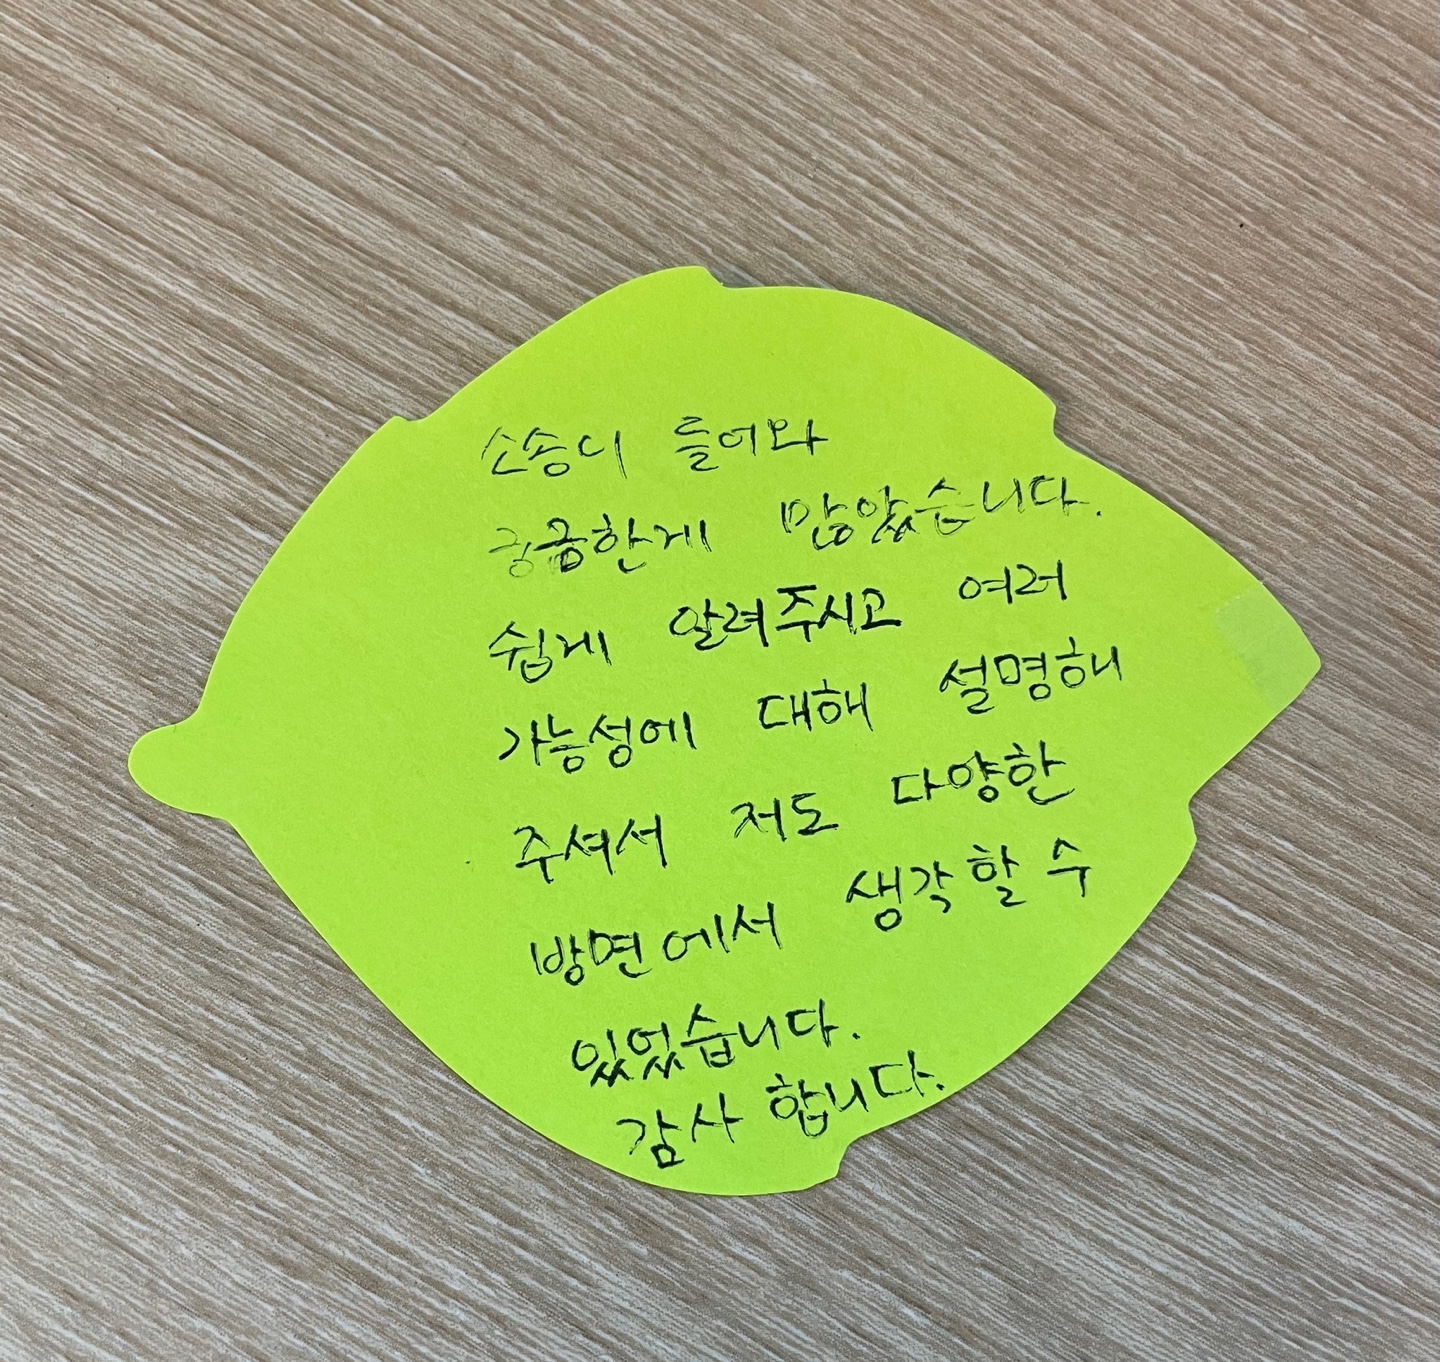 소송이 들어와
궁금한게 많았습니다.
쉽게 알려주시고 여러
가능성에 대해 설명해
주셔서 저도 다양한
방면에서 생각할 수
있었습니다.
감사합니다.